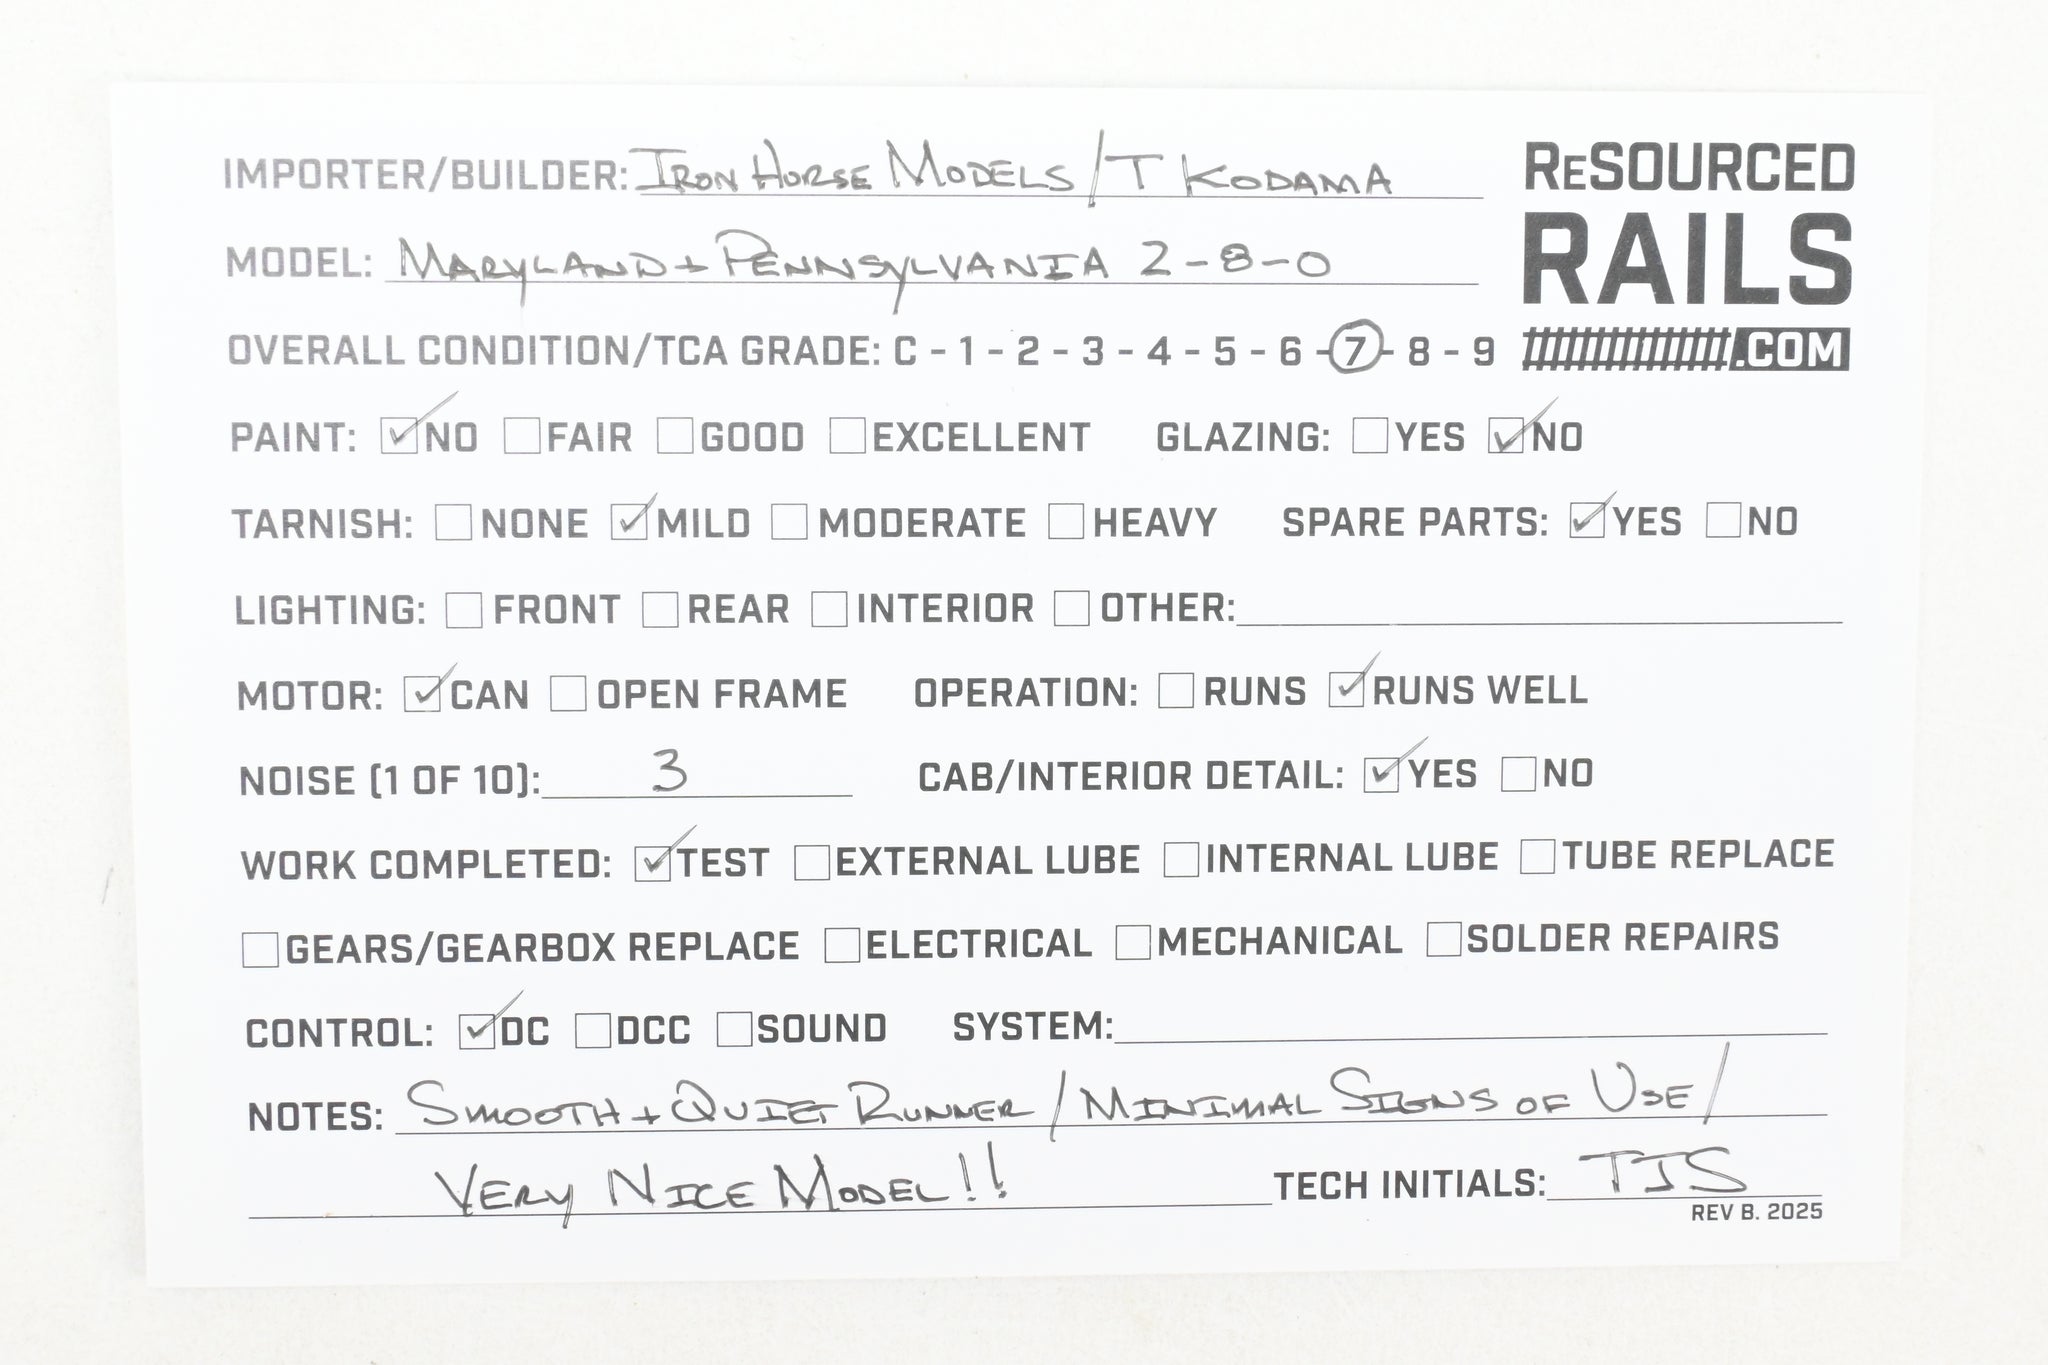 IMPORTER/BUILDER: IRON HORSE MODELS / T KODAMA
ReSOURCED
RAILS
.COM
MODEL: MARYLAND + PENNSYLVANIA 2-8-0
OVERALL CONDITION/TCA GRADE: C - 1 - 2 - 3 - 4 - 5 - 6 - 7 - 8 - 9
PAINT: ☑ NO ☐ FAIR ☐ GOOD ☐ EXCELLENT GLAZING: ☐ YES ☑ NO
TARNISH: ☐ NONE ☑ MILD ☐ MODERATE ☐ HEAVY SPARE PARTS: ☑ YES ☐ NO
LIGHTING: ☐ FRONT ☐ REAR ☐ INTERIOR ☐ OTHER:
MOTOR: ☑ CAN ☐ OPEN FRAME OPERATION: ☐ RUNS ☑ RUNS WELL
NOISE (1 OF 10): 3 CAB/INTERIOR DETAIL: ☑ YES ☐ NO
WORK COMPLETED: ☑ TEST ☐ EXTERNAL LUBE ☐ INTERNAL LUBE ☐ TUBE REPLACE
☐ GEARS/GEARBOX REPLACE ☐ ELECTRICAL ☐ MECHANICAL ☐ SOLDER REPAIRS
CONTROL: ☑ DC ☐ DCC ☐ SOUND SYSTEM:
NOTES: SMOOTH + QUIET RUNNER / MINIMAL SIGNS OF USE /
VERY NICE MODEL!! TECH INITIALS: TJS
REV B. 2025